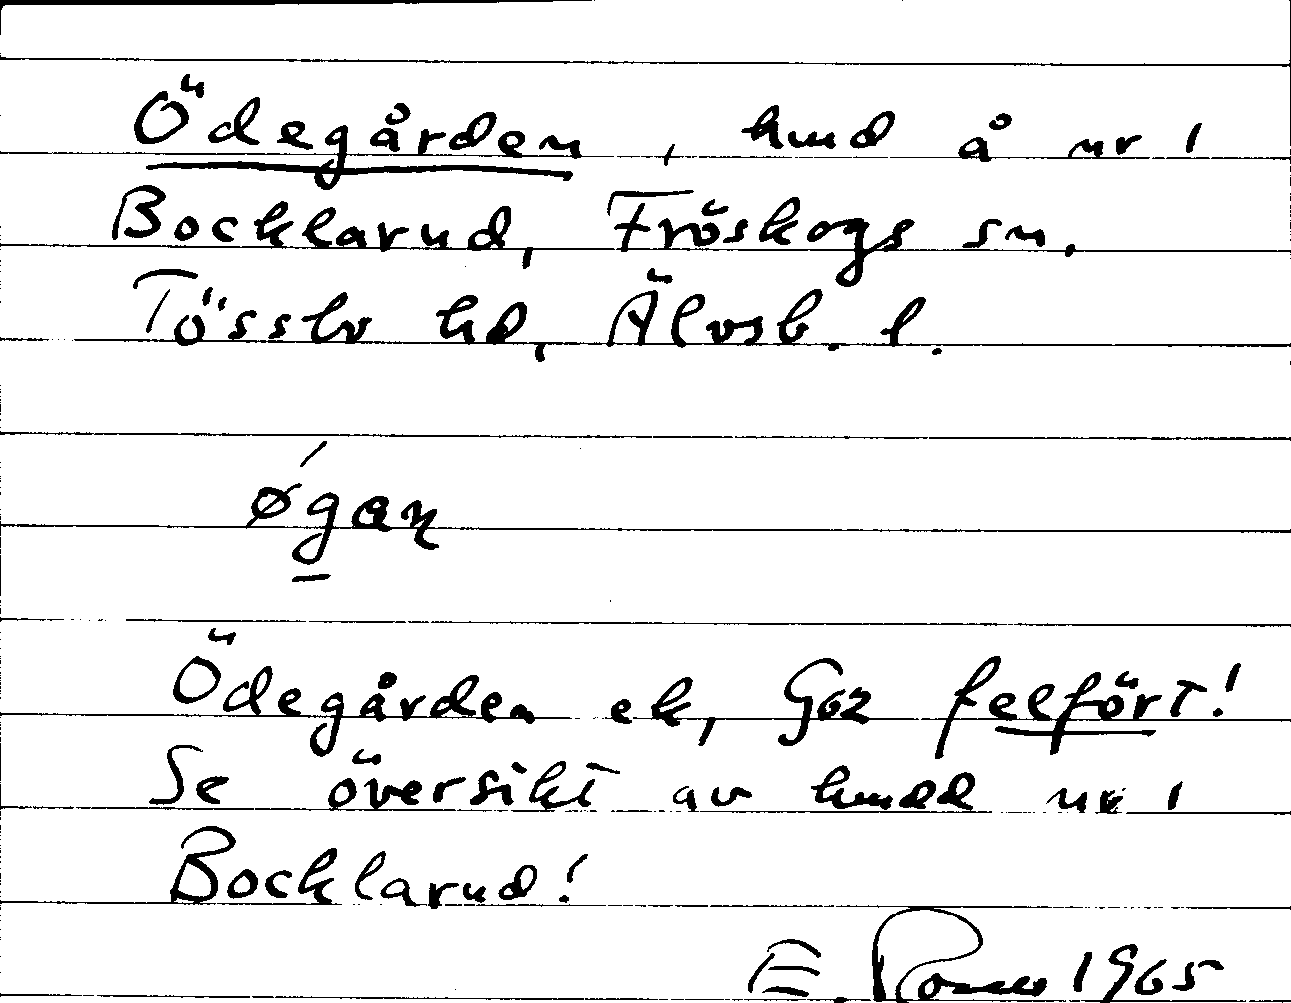 Ödegården, hmd å nr 1
Bocklarud, Fröskogs sn.
Tössbo hd, Älvsb. l.
øgaɳ
Ödegården ek, G62 felfört!
Se översikt av hmdd nr 1
Bocklarud!
E. 1965